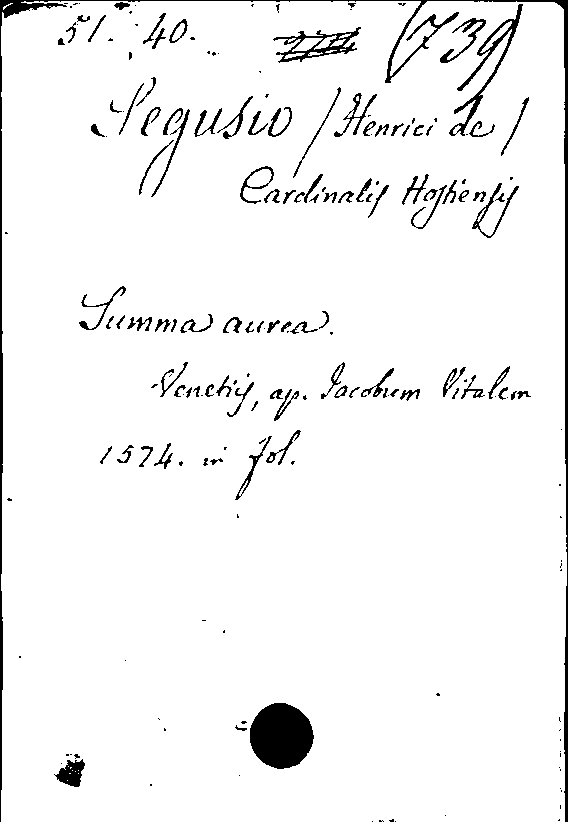 51. 40. (739)
Segusio / Henrici de /
Cardinalis Hostiensis
Summa aurea.
Venetijs, ap. Jacobum Vitalem
1574. in fol.